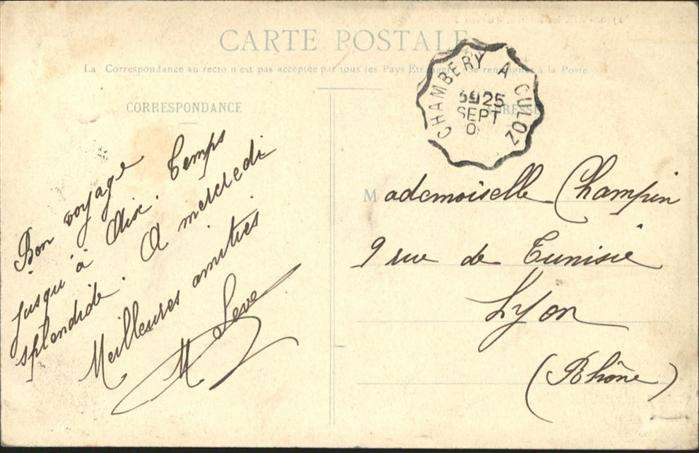 CARTE POSTALE
La Correspondance au recto n'est pas acceptée par tous les Pays à la Poste
CORRESPONDANCE
CHAMBERY A CULOZ
25
SEPT
Bon voyage
jusqu'à Aix. Temps
splendide. A mercredi
Meilleures amitiés
M
Mademoiselle Champin
9 rue de Tunisie
Lyon
(Rhône)